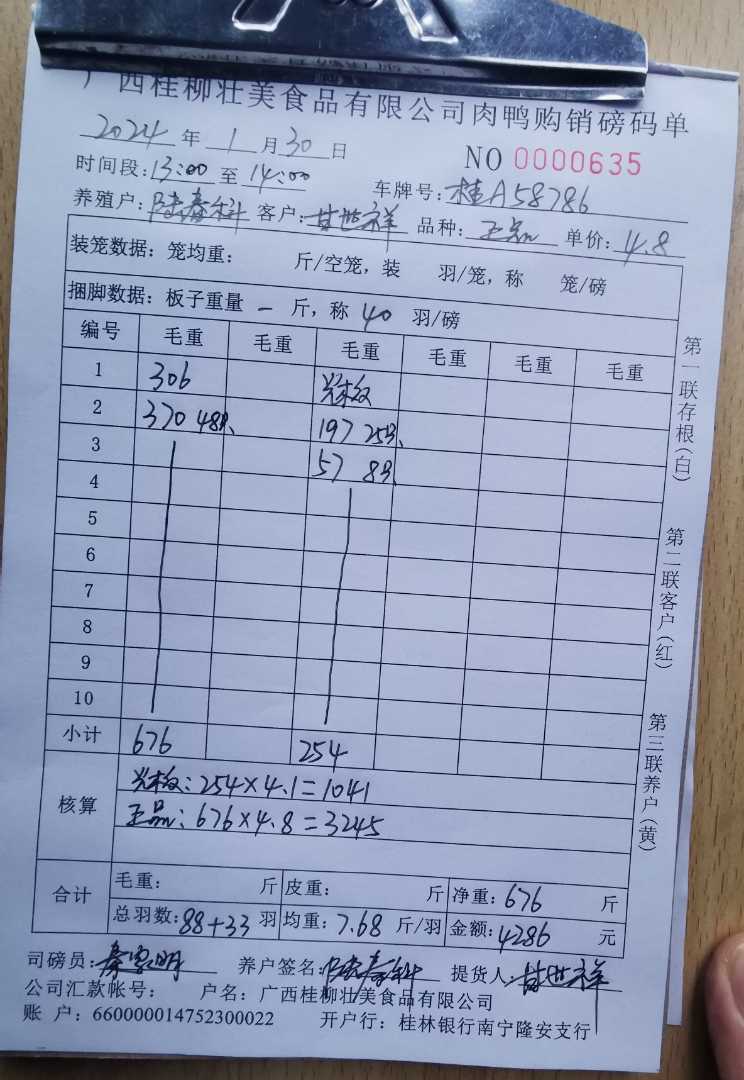 广西桂柳壮美食品有限公司肉鸭购销磅码单
2024 年 1 月 30 日 NO 0000635
时间段:13:00 至 14:00 车牌号:桂A58786
养殖户:陆春科 客户:甘世祥 品种:正品 单价:4.8
装笼数据: 笼均重: 斤/空笼, 装 羽/笼, 称 笼/磅
捆脚数据: 板子重量 一 斤, 称 40 羽/磅
编号 毛重 毛重 毛重 毛重 毛重 毛重
1 306
2 370 48只 197 25只
3 57 8只
4
5
6
7
8
9
10
小计 676 254
核算
254×4.1=1041
正品:676×4.8=3245
合计 毛重: 斤 皮重: 斤 净重:676 斤
总羽数:88+33 羽 均重:7.68 斤/羽 金额:4286 元
司磅员: 养户签名:陆春科 提货人:甘世祥
公司汇款帐号: 户名:广西桂柳壮美食品有限公司
账 户:660000014752300022 开户行:桂林银行南宁隆安支行
第一联存根(白)
第二联客户(红)
第三联养户(黄)